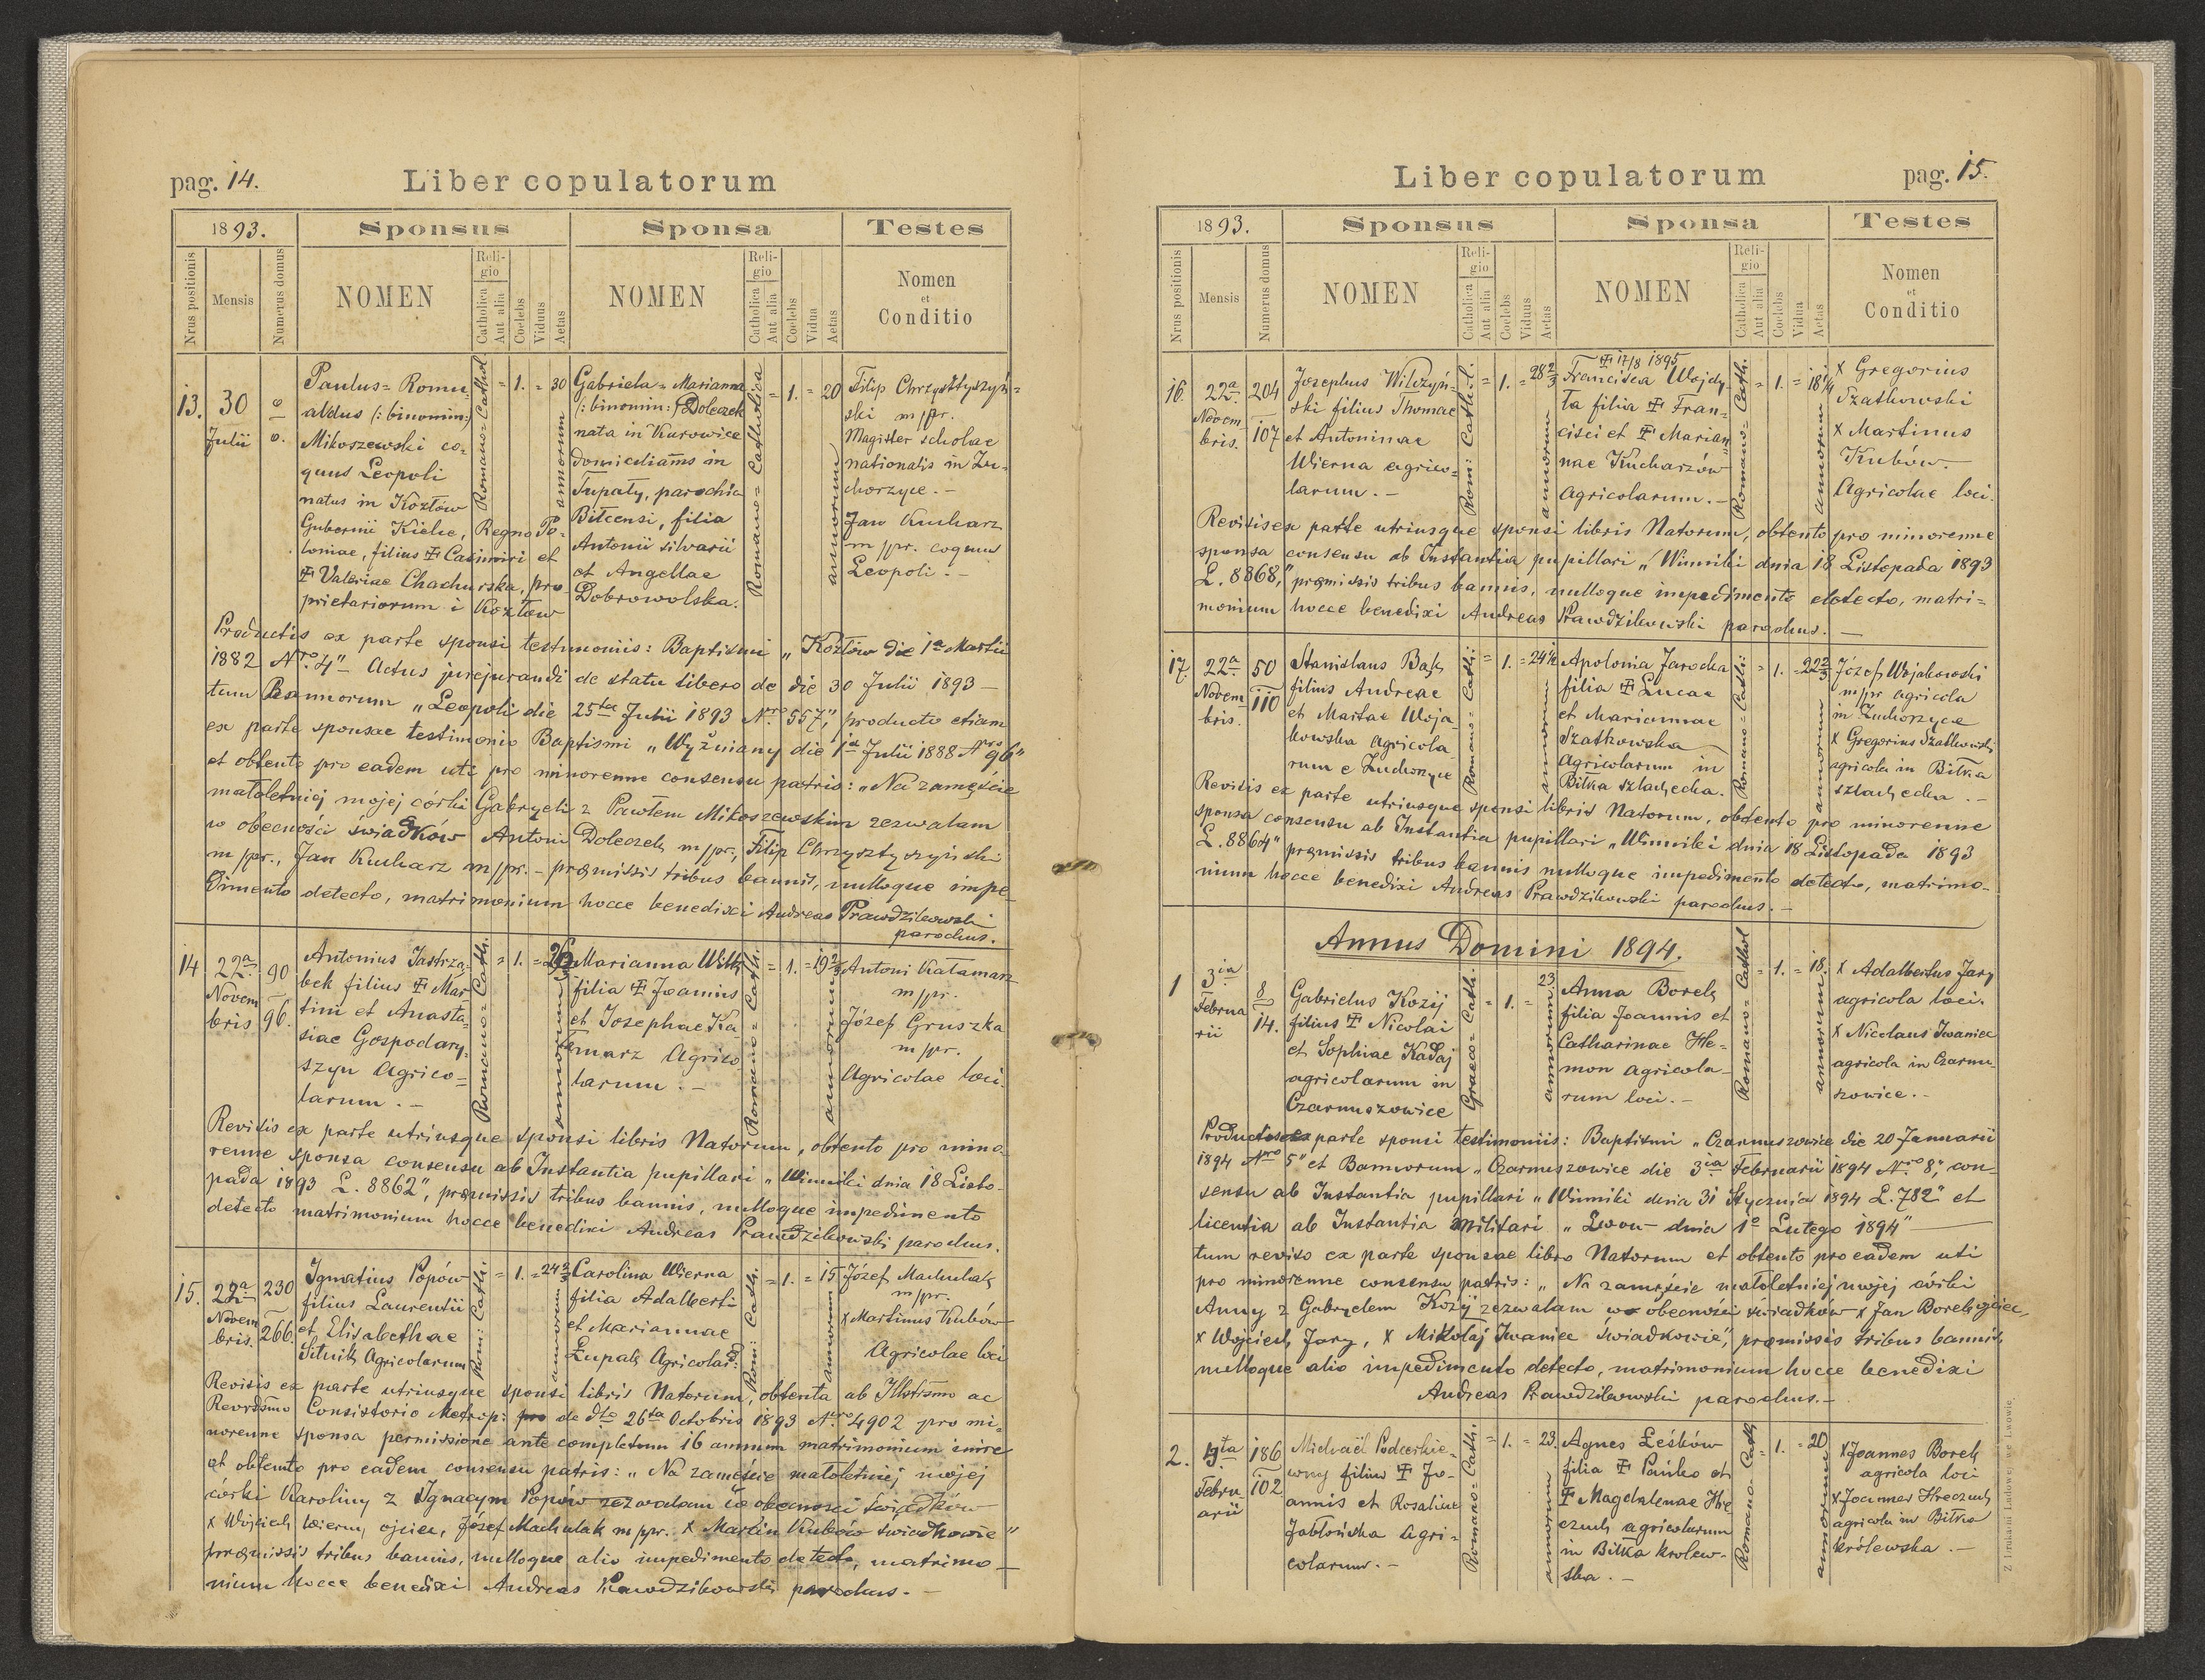 pag. 14.
Liber copulatorum
1893.
Sponsus
Sponsa
Testes
Nrus positionis
Mensis
Numerus domus
NOMEN
Religio
Catholica
Aut alia
Coelebs
Viduus
Aetas
NOMEN
Religio
Catholica
Aut alia
Coelebs
Vidua
Aetas
Nomen
et
Conditio
13.
30
Julii
Paulus= Romu-
aldus (: binomin:)
Mikoszewski co-
quus Leopoli
natus in Kozłów
Gubernii Kielce, Regno Po-
loniae, filius Ŧ Casimiri et
Ŧ Valeriae Chachurska, pro-
prietariorum i Kozłow
Romano=Cathol
= 1. = 30
annorum
Gabriela= Marianna
(: binomin:) Doleczek
nata in Kurowice
domiciliams in
Tupaty, parochia
Biłcensi, filia
Antonii silvarii
et Angellae
Dobrowolska.
Romano= Catholica
= 1. = 20
annorum
Filip Chrzysztyszyń=
ski m/pr.
Magister scholae
nationalis in Zu-
chorzyce. -
Jan Kucharz
m/pr. coquus
Leopoli. -
Productis ex parte sponsi testimoniis: Baptismi „Kozłów die 1a Martii
1882 Nro. 4" Actus jurejurandi de statu libero de die 30 Julii 1893 —
tum Bannorum „Leopoli die 25ta Julii 1893 Nro 557," producto etiam
ex parte sponsae testimonio Baptismi „Wyżniany die 1a Julii 1888 Nro 96"
et obtento pro eadem uti pro minorenne consensu patris: „Na zamęście
małoletniej mojej córki Gabryeli z Pawłem Mikoszewskim zezwalam
w obecności świadków Antoni Doleczek m/pr., Filip Chrzysztyszyński
m/pr., Jan Kucharz m/pr. - præmissis tribus bannis, nulloque impe-
dimento detecto, matrimonium hocce benedixi Andreas Prawdzikowski
parochus.
14
22a
Novem
bris
90
96.
Antonius Jastrzą-
bek filius Ŧ Mar
tini et Anasta-
siae Gospodary-
szyn Agrico=
larum. -
Romano= Cath.
= 1. =
annorum
Marianna Wilk
filia Ŧ Joannis
et Josephae Ka
łamarz Agrico
larum. -
Romano= Cath.
= 1. =
annorum
Antoni Kałamarz
m/pr.
Józef Gruszka
m/pr.
Agricolae loci
Revisis ex parte utriusque sponsi libris Natorum, obtento pro mino
renne sponsa consensu ab Instantia pupillari „Winniki dnia 18 Listo-
pada 1893 L. 8862", præmissis tribus bannis, nulloque impedimento
detecto matrimonium hocce benedixi Andreas Prawdzikowski parochus.
15.
22a
Novem
bris
230
266.
Ignatius Popów
filius Laurentii
et Elisabethae
Sitnik Agricolarum
Rom: Cath.
= 1. = 24 2/3
annorum
Carolina Wierna
filia Adalberti
et Mariannae
Łupak Agricolar:
Rom: Cath.
= 1. = 15
annorum
Józef Machulak
m/pr.
x Martinus Kubów
Agricolae loci
Revisis ex parte utriusque sponsi libris Natorum, obtenta ab Illstrsmo ac
Revrdsmo Consistorio Metrop: de dto 26ta Octobris 1893 Nro 4902 pro mi-
norenne sponsa permissione ante completum 16 annum matrimonium inire
et obtento pro eadem consensu patris: „Na zamęście małoletniej mojej
córki Karoliny z Ignacym Popów zezwalam w obecności świadków
x Wojciech Wierny ojciec, Józef Machulak m/pr. x Marcin Kubów świadkowie"
præmissis tribus bannis, nulloque alio impedimento detecto, matrimo-
nium hocce benedixi Andreas Prawdzikowski parochus. -
Liber copulatorum
pag. 15.
1893.
Sponsus
Sponsa
Testes
Nrus positionis
Mensis
Numerus domus
NOMEN
Religio
Catholica
Aut alia
Coelebs
Viduus
Aetas
NOMEN
Religio
Catholica
Aut alia
Coelebs
Vidua
Aetas
Nomen
et
Conditio
16.
22a
Novem
bris.
204
107
Josephus Wilczyń-
ski filius Thomae
et Antoninae
Wierna agrico=
larum. -
= 1. = 28 2/3
annorum
Ŧ 17/8 1895
Francisca Wojdy-
ła filia Ŧ Fran=
cisci et Ŧ Marian
nae Kucharzów
Agricolarum. -
Romano= Cath.
= 1. = 18 1/4
annorum
x Gregorius
Szatkowski
x Martinus
Kubów.
Agricolae loci.
Revisis ex parte utriusque sponsi libris Natorum, obtento pro minorenne
sponsa consensu ab Instantia pupillari „Winniki dnia 18 Listopada 1893
L. 8868," præmissis tribus bannis, nulloque impedimento detecto, matri=
monium hocce benedixi Andreas Prawdzikowski parochus. —
17.
22a
Novem
bris.
50
110
Stanislaus Bąk
filius Andreae
et Martae Woja
kowska agricola
rum e Zuchorzyce
Romano= Cath:
= 1. = 24 1/2
annorum
Apolonia Jarocka
filia Ŧ Lucae
et Mariannae
Szatkowska
Agricolarum in
Biłka szlachecka.
Romano= Cath:
= 1. = 22 2/3
annorum
Józef Wojakowski
m/pr agricola
in Zuchorzyce
x Gregorius Szatkowski
agricola in Biłka
szlachecka. -
Revisis ex parte utriusque sponsi libris Natorum, obtento pro minorenne
sponsa consensu ab Instantia pupillari „Winniki dnia 18 Listopada 1893
L. 8864" præmissis tribus bannis nulloque impedimento detecto, matrimo-
nium hocce benedixi Andreas Prawdzikowski parochus. -
Annus Domini 1894.
1
3ia
Februa
rii
8
14.
Gabrielus Kozij
filius Ŧ Nicolai
et Sophiae Kadaj
agricolarum in
Czarnuszowice
Graeco= Cath.
= 1. = 23
annorum.
Anna Borek
filia Joannis et
Catharinae He=
mon agricola-
rum loci. -
Romano= Cathol
= 1. = 18.
annorum.
x Adalbertus Jary
agricola loci.
x Nicolaus Iwaniec
agricola in Czarnu-
szowice. -
Productis ex parte sponsi testimoniis: Baptismi „Czarnuszowice die 20 Januarii
1894 Nro 5" et Bannorum „Czarnuszowice die 3ia Februarii 1894 Nro 8", con-
sensu ab Instantia pupillari „Winniki dnia 31 Stycznia 1894 L. 782" et
licentia ab Instantia Militari „Lwow dnia 1o Lutego 1894" —
tum reviso ex parte sponsae libro Natorum et obtento pro eadem uti
pro minorenne consensu patris: „Na zamęście małoletniej mojej córki
Anny z Gabryelem Kozij zezwalam w obecności świadków x Jan Borek ojciec
x Wojciech Jary, x Mikołaj Iwaniec świadkowie", præmissis tribus bannis
nulloque alio impedimento detecto, matrimonium hocce benedixi
Andreas Prawdzikowski parochus. -
2.
Febru-
arii
186
102
filius Ŧ Jo-
annis et Rosaliae
Jabłońska Agri-
colarum. -
Romano= Cath.
= 1. = 23.
annorum
Agnes Leśków
filia Ŧ Pańko et
Ŧ Magdalenae Hre
czuch agricolarum
in Biłka królew-
ska. -
Romana= Cath
= 1. = 20
annorum
x Joannes Borek
agricola loci
x Joannes Hreczuch
agricola in Biłka
królewska. -
Z Drukarni Ludowej we Lwowie.